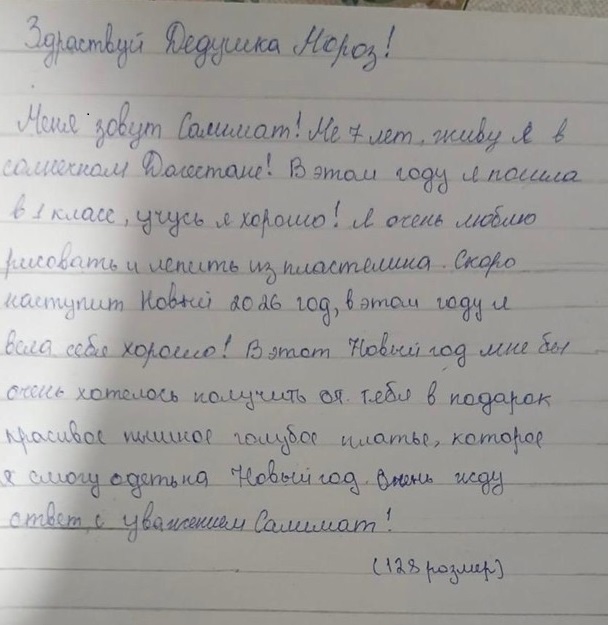 Здраствуй Дедушка Мороз!
Меня зовут Салимат! Ме 7 лет, живу я в
солнечном Дагестане! В этом году я пошла
в 1 класс, учусь я хорошо! Я очень люблю
рисовать и лепить из пластелина. Скоро
наступит Новый 2026 год, в этом году я
вела себя хорошо! В этот Новый год мне бы
очень хотелось получить от тебя в подарок
красивое пышное голубое платье, которое
я смогу одеть на Новый год. Очень жду
ответ, с уважением Салимат!
(128 розмер)